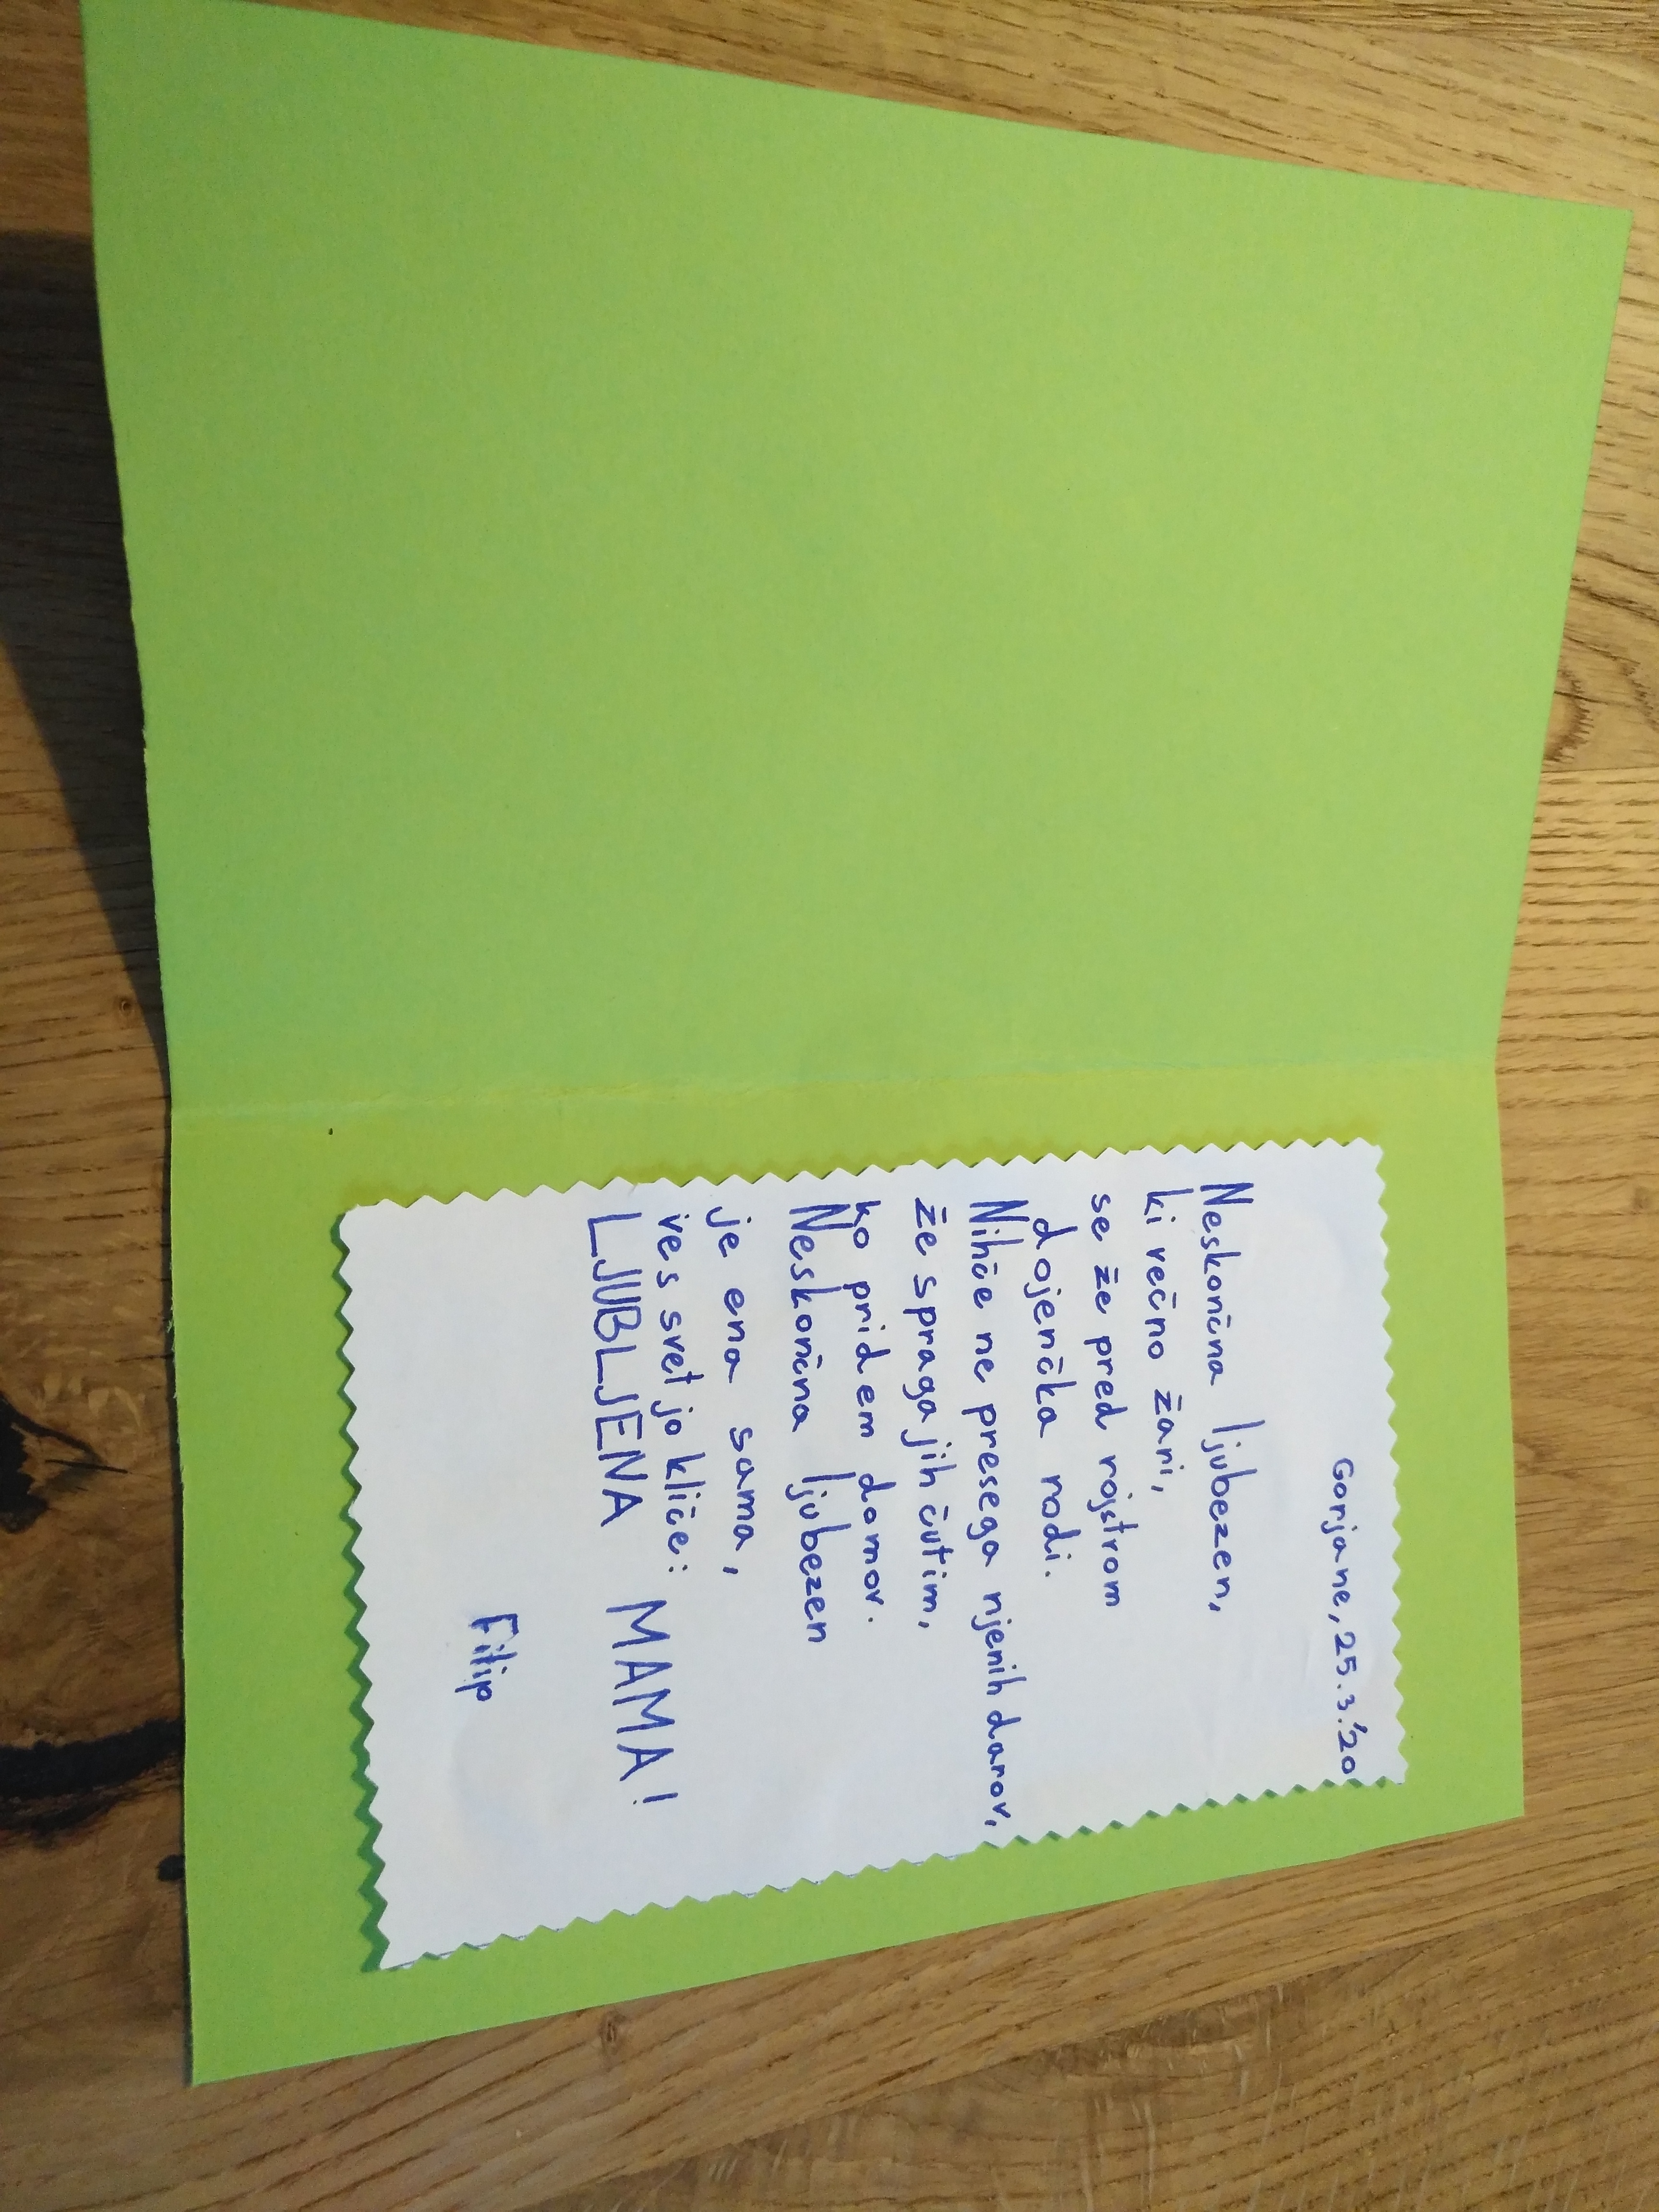 Gorjane, 25.3.'20
Neskončna ljubezen,
ki večno žari,
se že pred rojstrom
dojenčka rodi.
Nihče ne presega njenih darov,
že s praga jih čutim,
ko pridem domov.
Neskončna ljubezen
je ena sama,
ves svet jo kliče:
LJUBLJENA MAMA!
Filip